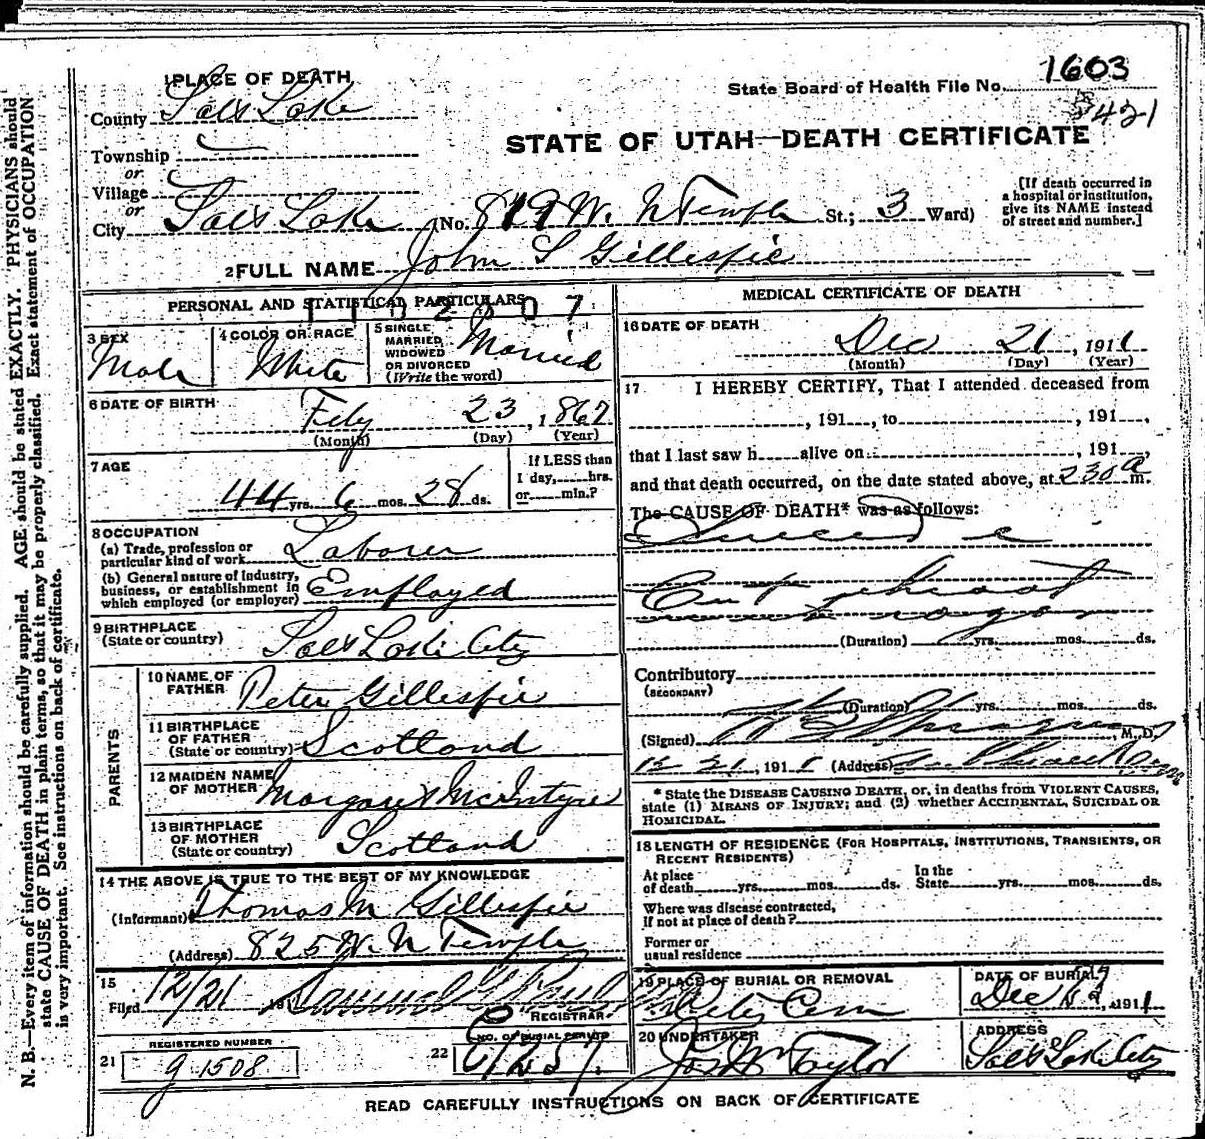 1 PLACE OF DEATH
State Board of Health File No. 1603
421
County Salt Lake
STATE OF UTAH—DEATH CERTIFICATE
Township
or
Village
or
City Salt Lake (No. 819 W. N Temple St.; 3 Ward)
[If death occurred in
a hospital or institution,
give its NAME instead
of street and number.]
2 FULL NAME John S Gillespie
PERSONAL AND STATISTICAL PARTICULARS
3 SEX
Male
4 COLOR OR RACE
White
5 SINGLE
MARRIED,
WIDOWED
OR DIVORCED
(Write the word)
Married
6 DATE OF BIRTH
Feby 23, 1867
(Month) (Day) (Year)
7 AGE
44 yrs. 6 mos. 28 ds.
If LESS than
1 day, hrs.
or min.?
8 OCCUPATION
(a) Trade, profession or
particular kind of work Laborer
(b) General nature of industry,
business, or establishment in
which employed (or employer) Employed
9 BIRTHPLACE
(State or country) Salt Lake City
PARENTS
10 NAME OF
FATHER Peter Gillespie
11 BIRTHPLACE
OF FATHER
(State or country) Scotland
12 MAIDEN NAME
OF MOTHER Margaret McIntyre
13 BIRTHPLACE
OF MOTHER
(State or country) Scotland
14 THE ABOVE IS TRUE TO THE BEST OF MY KNOWLEDGE
(Informant) Thomas M Gillespie
(Address) 825 W. N Temple
15
Filed 12/21 191
REGISTRAR.
REGISTERED NUMBER
21 g 1508
NO. OF BURIAL PERMIT
22
MEDICAL CERTIFICATE OF DEATH
16 DATE OF DEATH
Dec 21, 1911
(Month) (Day) (Year)
17 I HEREBY CERTIFY, That I attended deceased from
, 191 , to , 191 ,
that I last saw h alive on , 191 ,
and that death occurred, on the date stated above, at 230 a m.
The CAUSE OF DEATH* was as follows:
Suicide
Cut throat
razor
(Duration) yrs. mos. ds.
Contributory
(SECONDARY)
(Duration) yrs. mos. ds.
(Signed) , M. D.
12 21, 1911 (Address)
* State the DISEASE CAUSING DEATH, or, in deaths from VIOLENT CAUSES,
state (1) MEANS OF INJURY; and (2) whether ACCIDENTAL, SUICIDAL OR
HOMICIDAL.
18 LENGTH OF RESIDENCE (FOR HOSPITALS, INSTITUTIONS, TRANSIENTS, OR
RECENT RESIDENTS)
At place
of death yrs. mos. ds.
In the
State yrs. mos. ds.
Where was disease contracted,
if not at place of death?
Former or
usual residence
19 PLACE OF BURIAL OR REMOVAL
City Cem
DATE OF BURIAL
Dec , 1911
20 UNDERTAKER
Jos Wm Taylor
ADDRESS
Salt Lake City
READ CAREFULLY INSTRUCTIONS ON BACK OF CERTIFICATE
N. B.—Every item of information should be carefully supplied. AGE should be stated EXACTLY. PHYSICIANS should
state CAUSE OF DEATH in plain terms, so that it may be properly classified. Exact statement of OCCUPATION
is very important. See instructions on back of certificate.